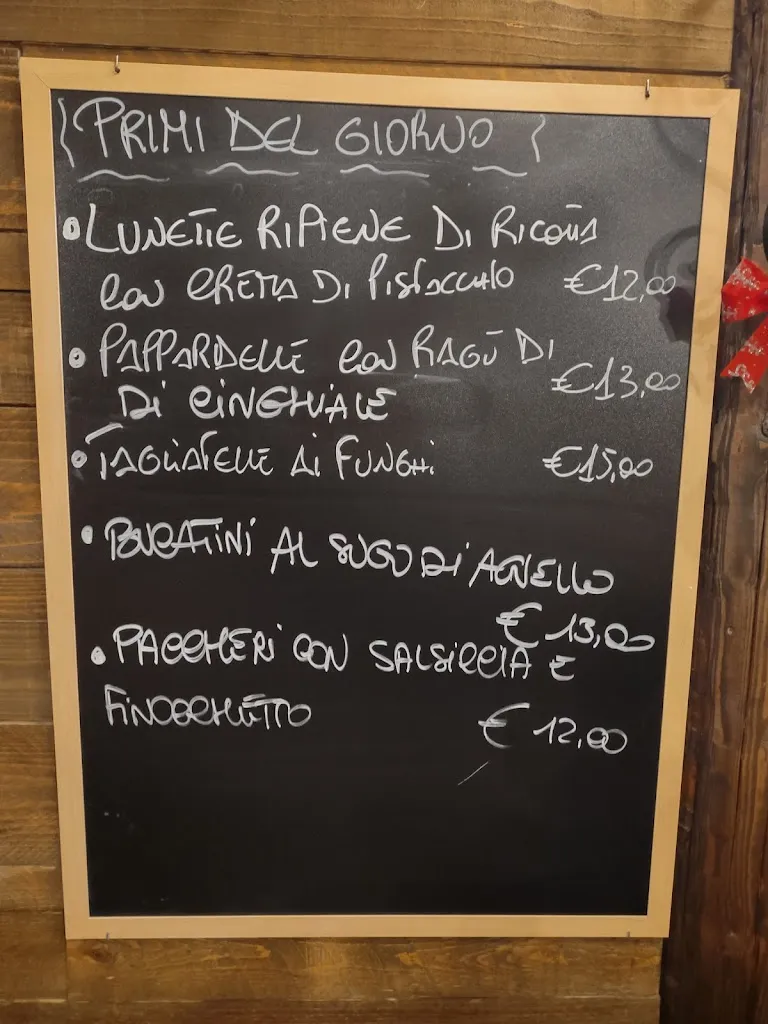 { PRIMI DEL GIORNO }
• LUNETTE RIPIENE DI RICOTTA
CON CREMA DI PISTACCHIO €12,00
• PAPPARDELLE CON RAGÙ DI
DI CINGHIALE €13,00
• TAGLIATELLE AI FUNGHI €15,00
• BUCATINI AL SUGO DI AGNELLO
€ 13,00
• PACCHERI CON SALSICCIA E
FINOCCHIETTO € 12,00